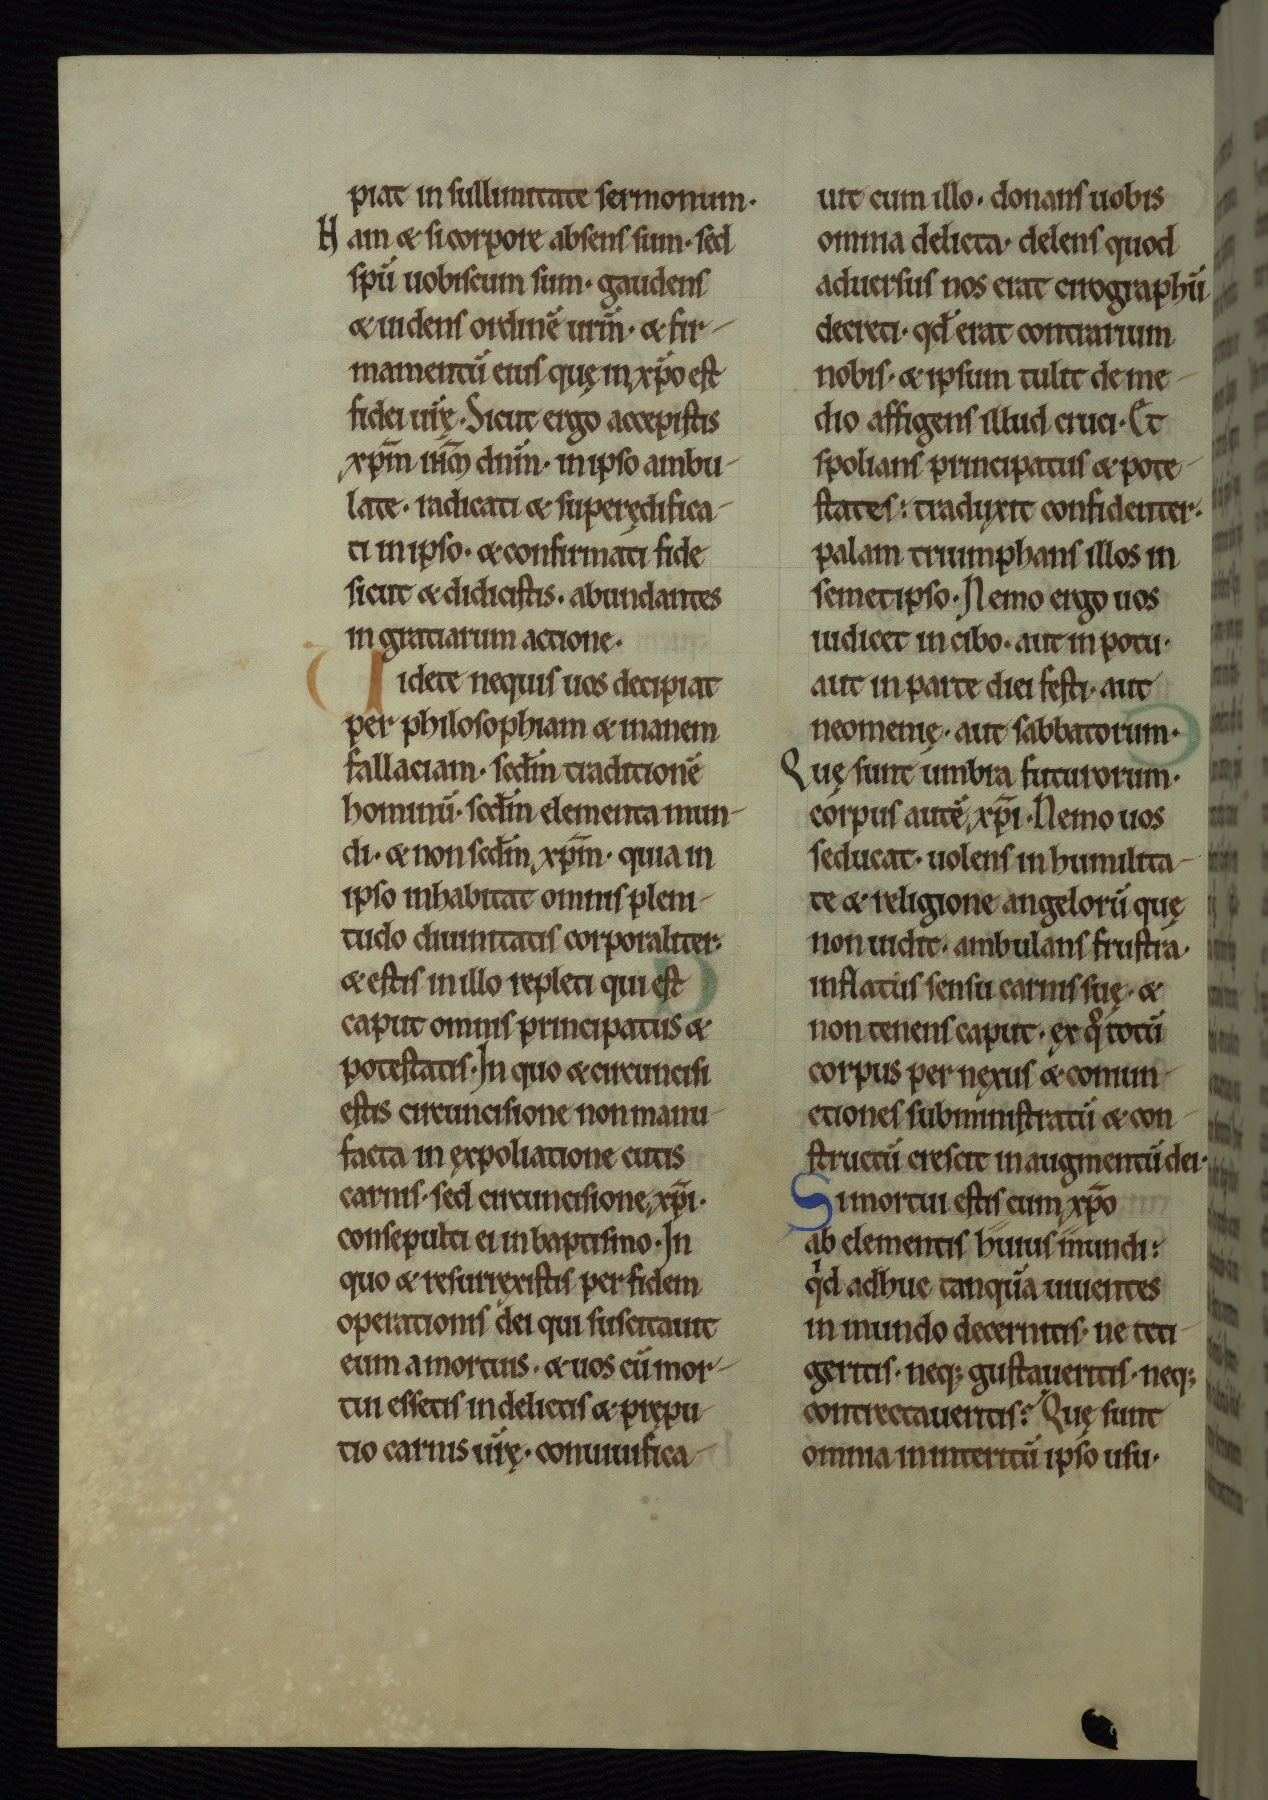 piat in sullimitate sermonum·
Nam & si corpore absens sum· sed
spū uobiscum sum· gaudens
& uidens ordinē urm̄· & fir-
mamentū eius quę in xp̄o est
fidei urę̄· Sicut ergo accepistis
xpm̄ ihm̄ dnm̄· in ipso ambu-
late· radicati & superędifica-
ti in ipso· & confirmati fide
sicut & didicistis· abundantes
in gratiarum actione·
Uidete nequis uos decipiat
per philosophiam & inanem
fallaciam· scđm traditionē
hominū· scđm elementa mun-
di· & non scđm xpm̄· quia in
ipso inhabitat omnis pleni-
tudo diuinitatis corporaliter·
& estis in illo repleti qui est
caput omnis principatus &
potestatis· In quo & circuncisi
estis circuncisione non manu-
facta in ęxpoliatione cutis
carnis· sed circuncisione xp̄i·
consepulti ei in baptismo· In
quo & resurręxistis per fidem
operationis dei qui suscitauit
eum a mortuis· & uos cū mor-
tui essetis in delictis & prępu-
tio carnis urę̄· conuiuifica-
uit cum illo· donans uobis
omnia delicta· delens quod
aduersus nos erat cirographū
decreti· qđ erat contrarium
nobis· & ipsum tulit de me-
dio affigens illud cruci· Et
spolians principatus & pote-
states: traduxit confidenter·
palam triumphans illos in
semetipso· Nemo ergo uos
iudicet in cibo· aut in potu·
aut in parte diei festi· aut
neomenię· aut sabbatorum·
Quę sunt umbra futurorum·
corpus autē xp̄i· Nemo uos
seducat· uolens in humilita-
te & religione angelorū quę
non uidit· ambulans frustra·
inflatus sensu carnis suę· &
non tenens caput· ęx qͦ totū
corpus per nęxus & coniun-
ctiones subministratū & con-
structū crescit in augmentū dei·
Si mortui estis cum xp̄o
ab elementis huius mundi:
qͥd adhuc tanquā uiuentes
in mundo decernitis· ne teti-
geritis· neq; gustaueritis· neq;
contrectaueritis? Quę sunt
omnia in interitū ipso usu·